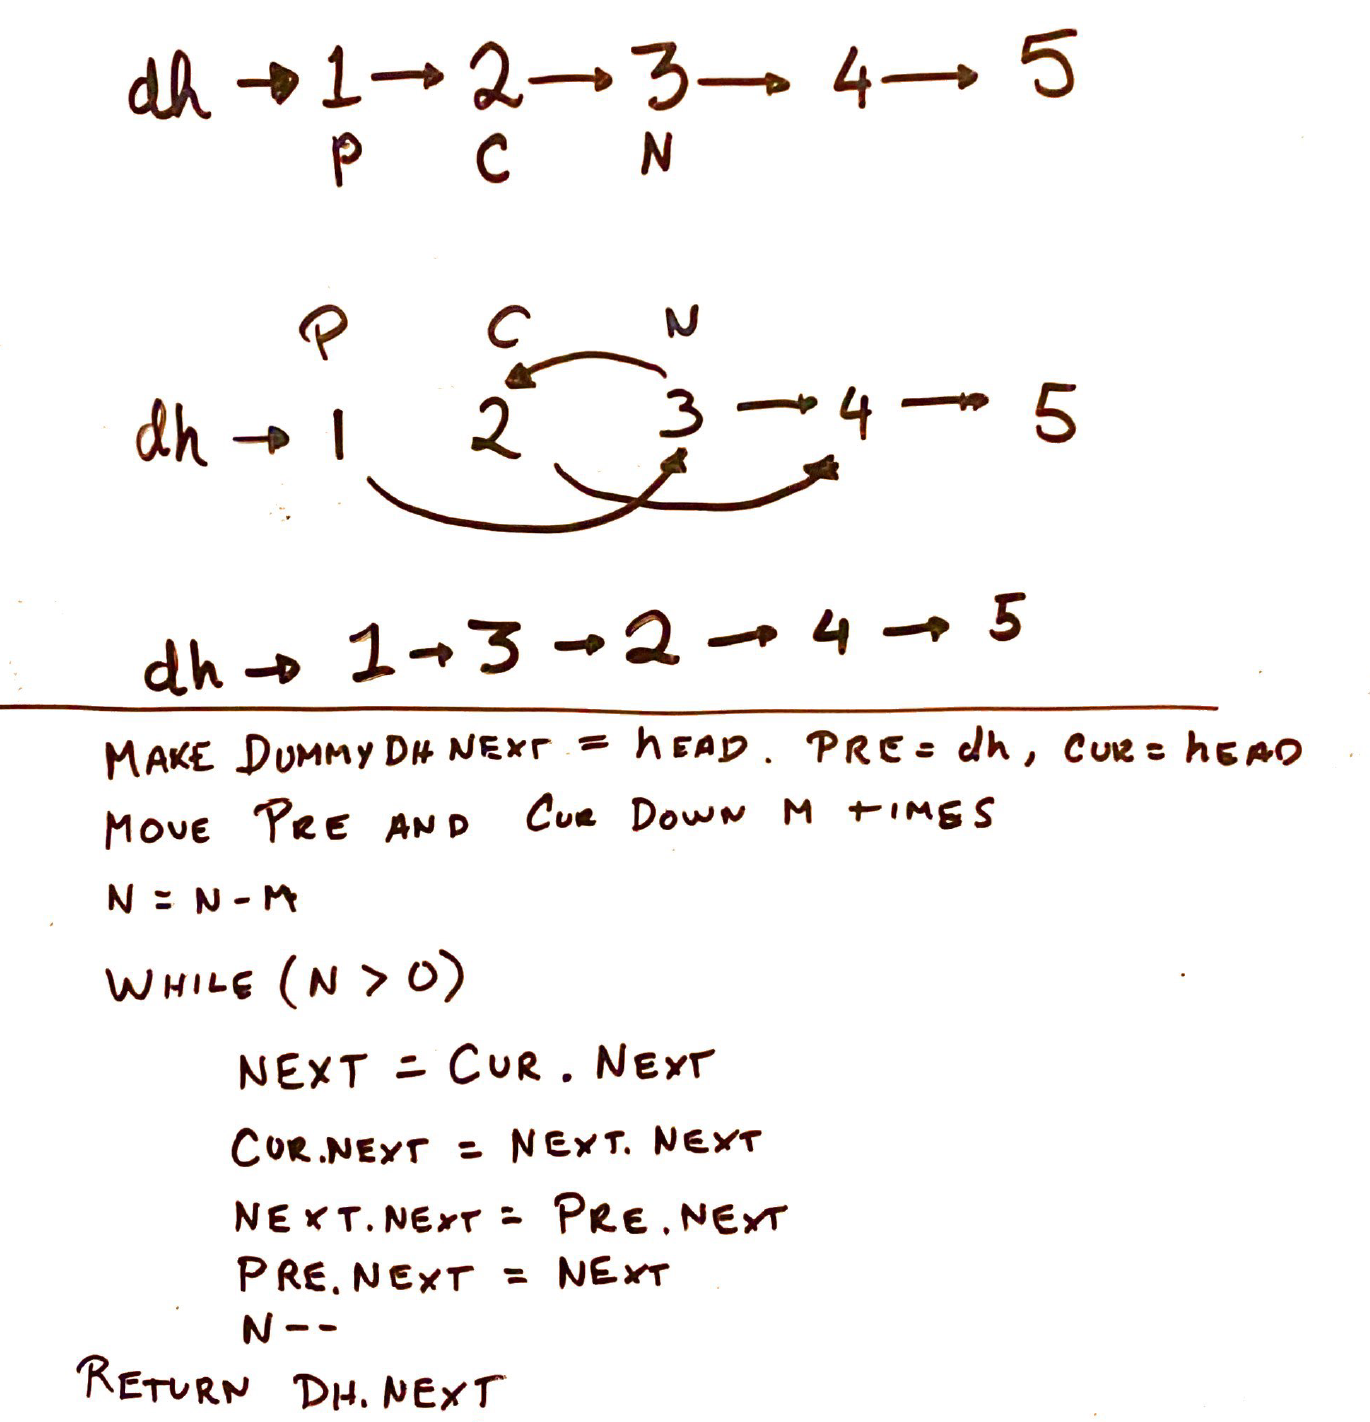 dh → 1 → 2 → 3 → 4 → 5
P C N
P C N
dh → 1 2 3 → 4 → 5
dh → 1 → 3 → 2 → 4 → 5
MAKE DUMMY DH NEXT = hEAD. PRE = dh, CUR = hEAD
MOVE PRE AND CUR DOWN M TIMES
N = N - M
WHILE (N > 0)
NEXT = CUR. NEXT
CUR.NEXT = NEXT. NEXT
NEXT.NEXT = PRE.NEXT
PRE.NEXT = NEXT
N--
RETURN DH.NEXT